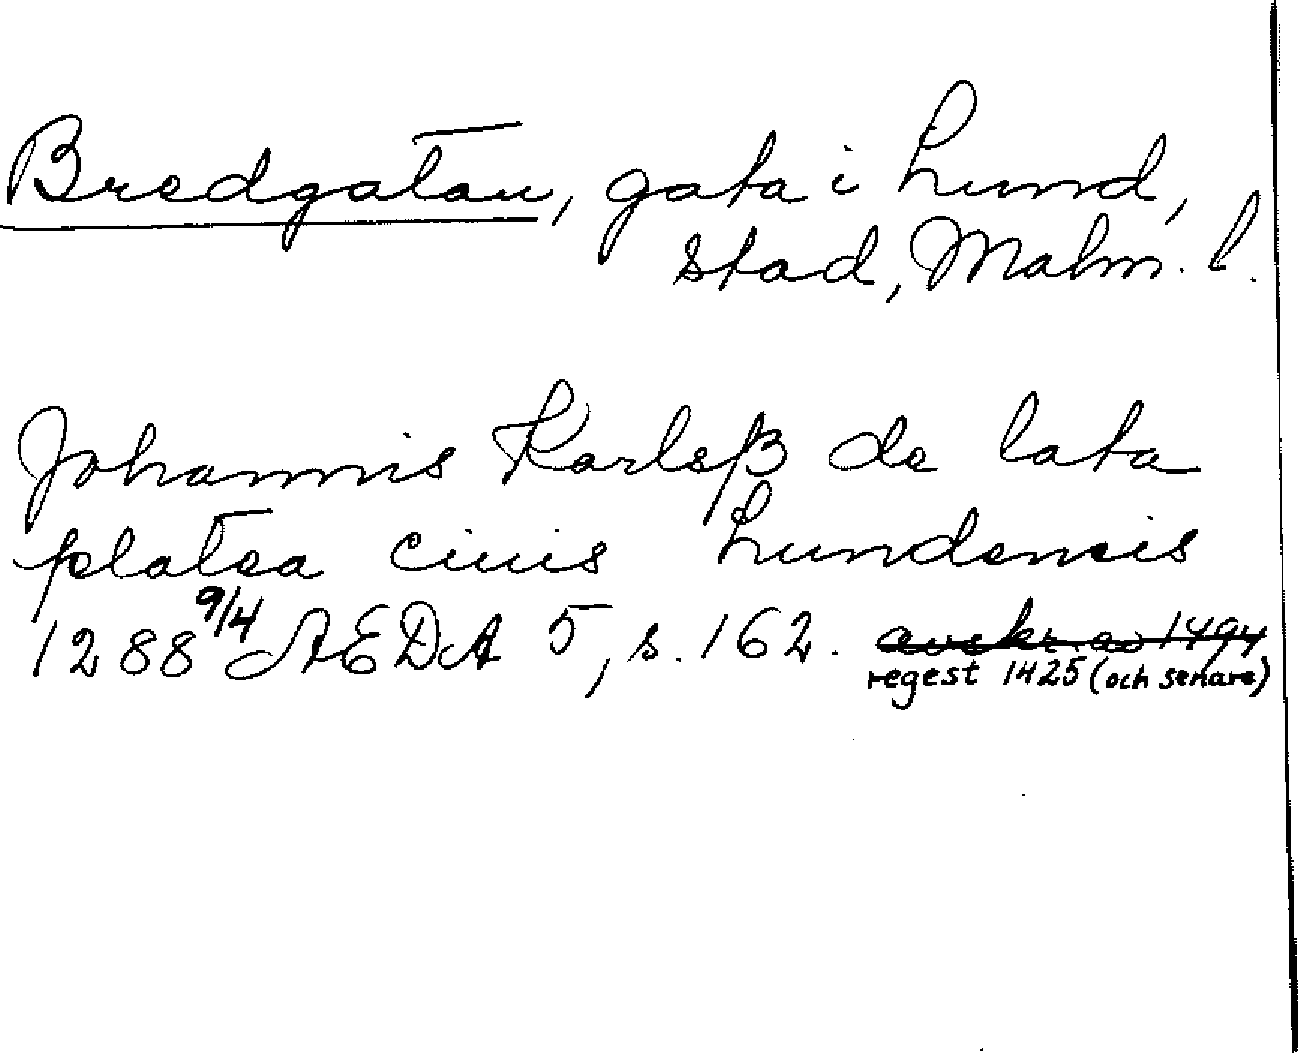 Bredgatan, gata i Lund,
stad, Malm. l.
Johannis Karlsß de lata
platea ciuis Lundensis
1288 9/4 AEDA 5, s. 162. avskr. av 1494
regest 1425 (och senare)